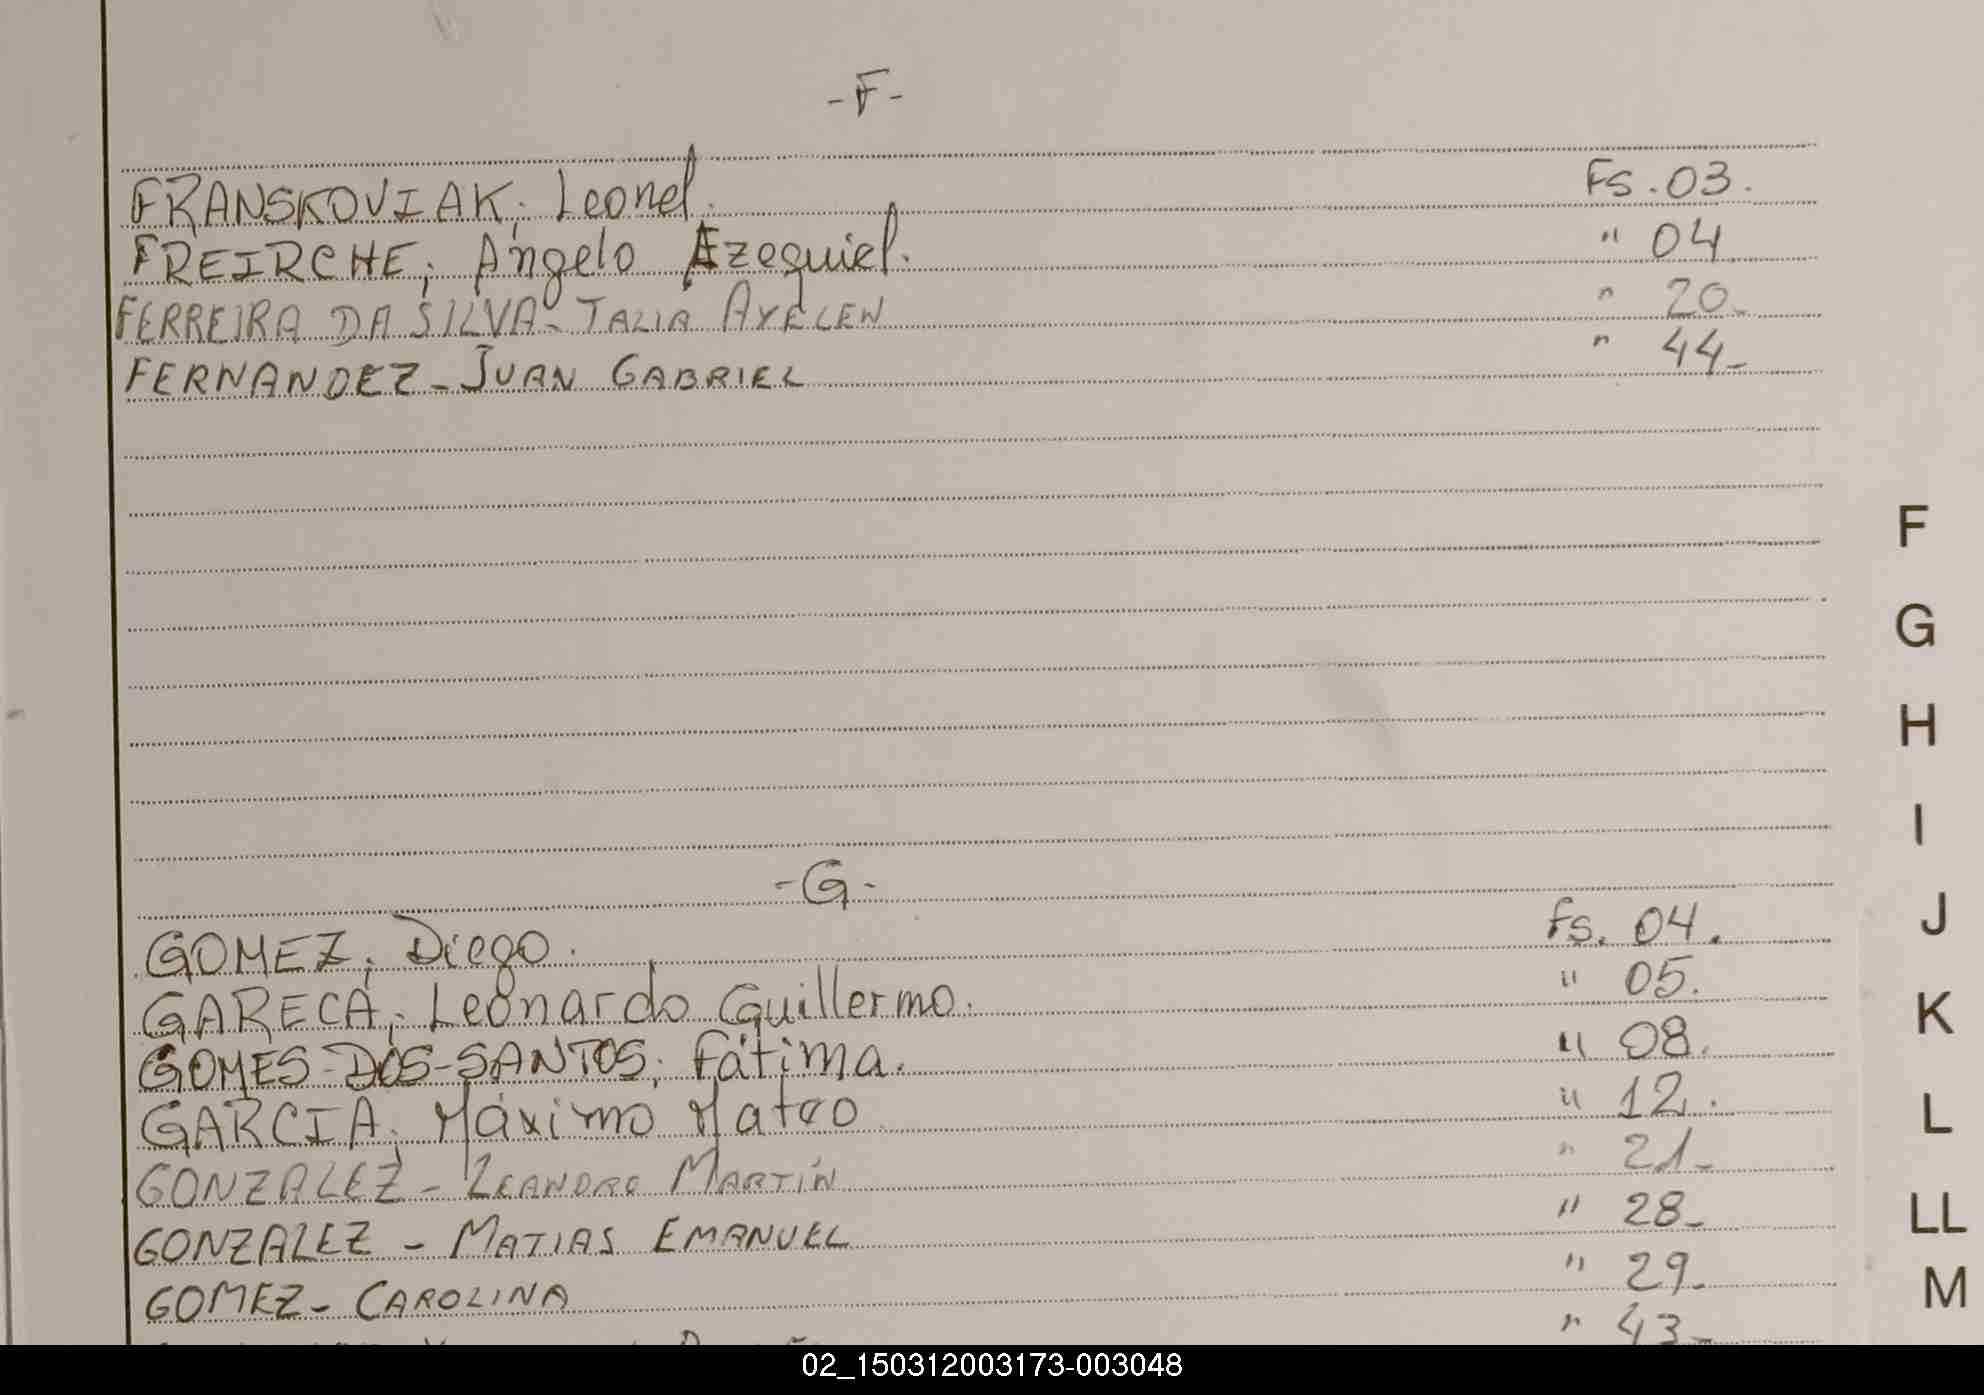 -F-
FRANSKOVIAK; Leonel. Fs. 03.
FREIRCHE; Angelo Ezequiel. " 04
FERREIRA DA SILVA - TALIA AYELEN " 20-
FERNANDEZ - JUAN GABRIEL " 44-
F
G
H
I
J
K
L
LL
M
-G-
GOMEZ; Diego. fs. 04.
GARECA; Leonardo Guillermo. " 05.
GOMES-DOS-SANTOS; Fátima. " 08.
GARCIA; Máximo Mateo " 12.
GONZALEZ - LEANDRO MARTÍN " 21-
GONZALEZ - MATIAS EMANUEL " 28-
GOMEZ - CAROLINA " 29-
" 43-
02_150312003173-003048